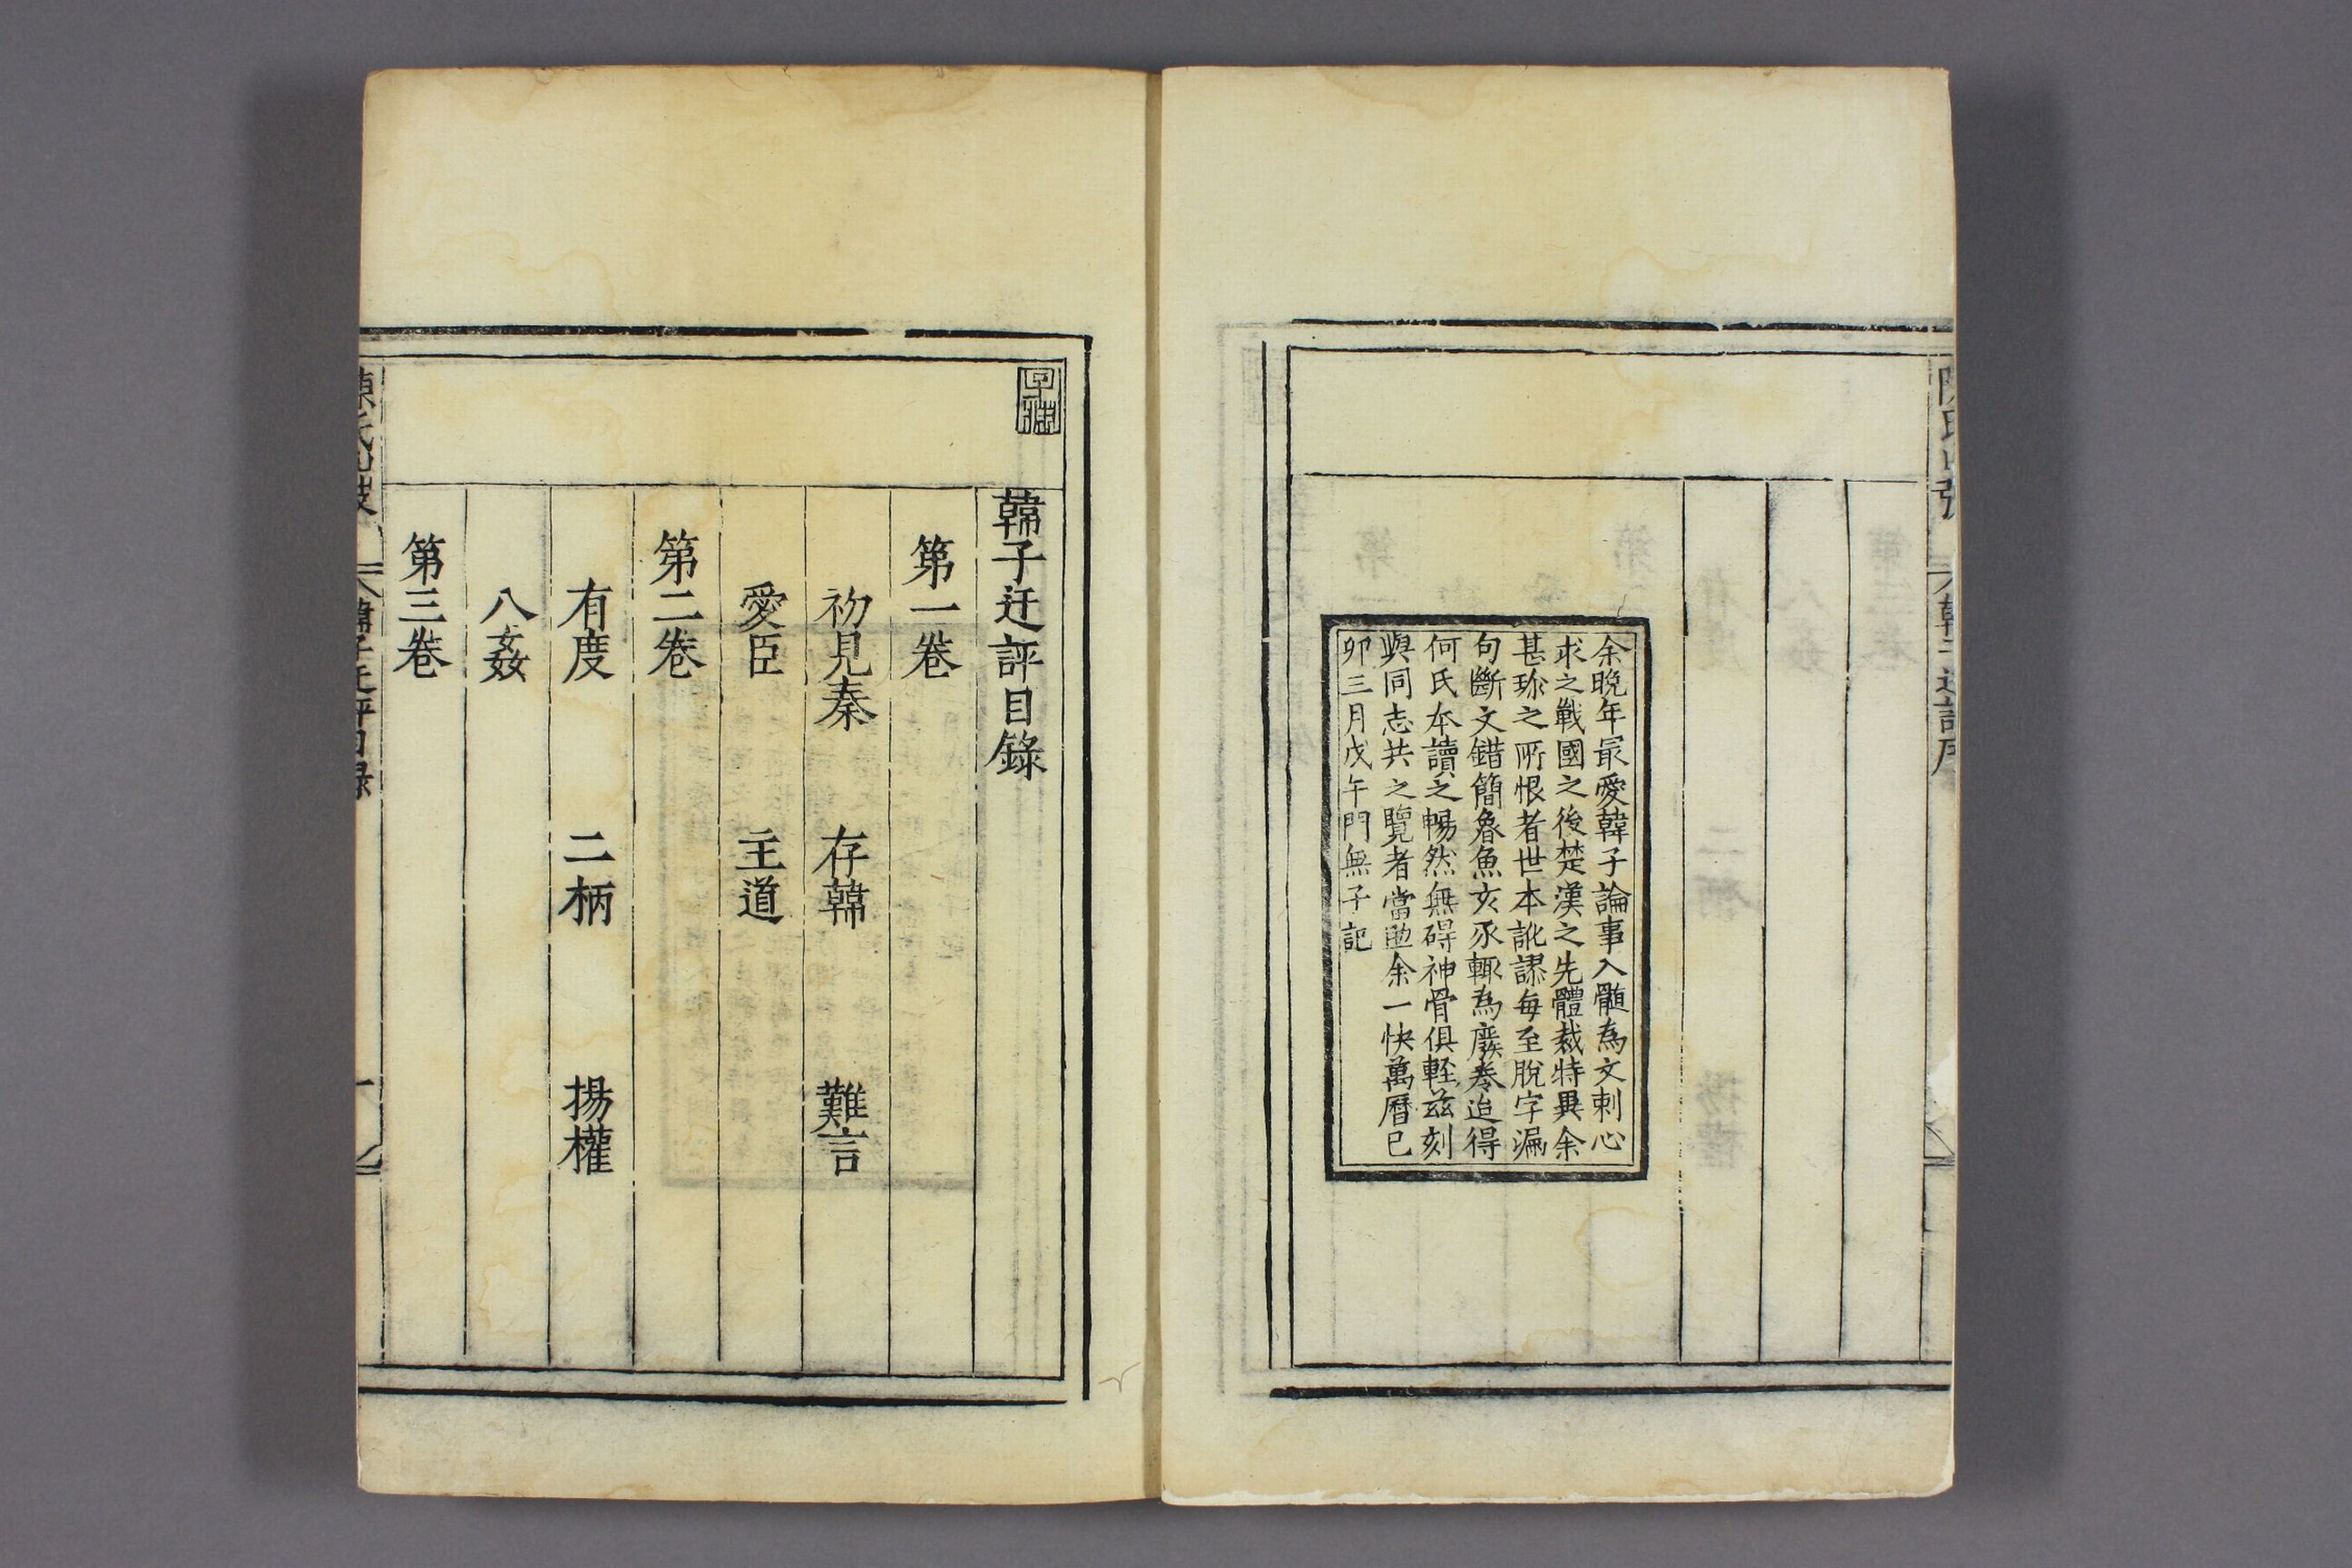 余晚年最愛韓子論事入髓為文刺心
求之戰國之後楚漢之先體裁特異余
甚珎之所恨者世本訛謬每至脫字漏
句斷文錯簡魯魚亥豕輙為廢卷迨得
何氏本讀之暢然無碍神骨俱輕茲刻
與同志共之覽者當逌余一快萬曆己
卯三月戊午門無子記
韓子迂評目錄
第一卷
初見秦 存韓 難言
愛臣 主道
第二卷
有度 二柄 揚權
八姦
第三卷